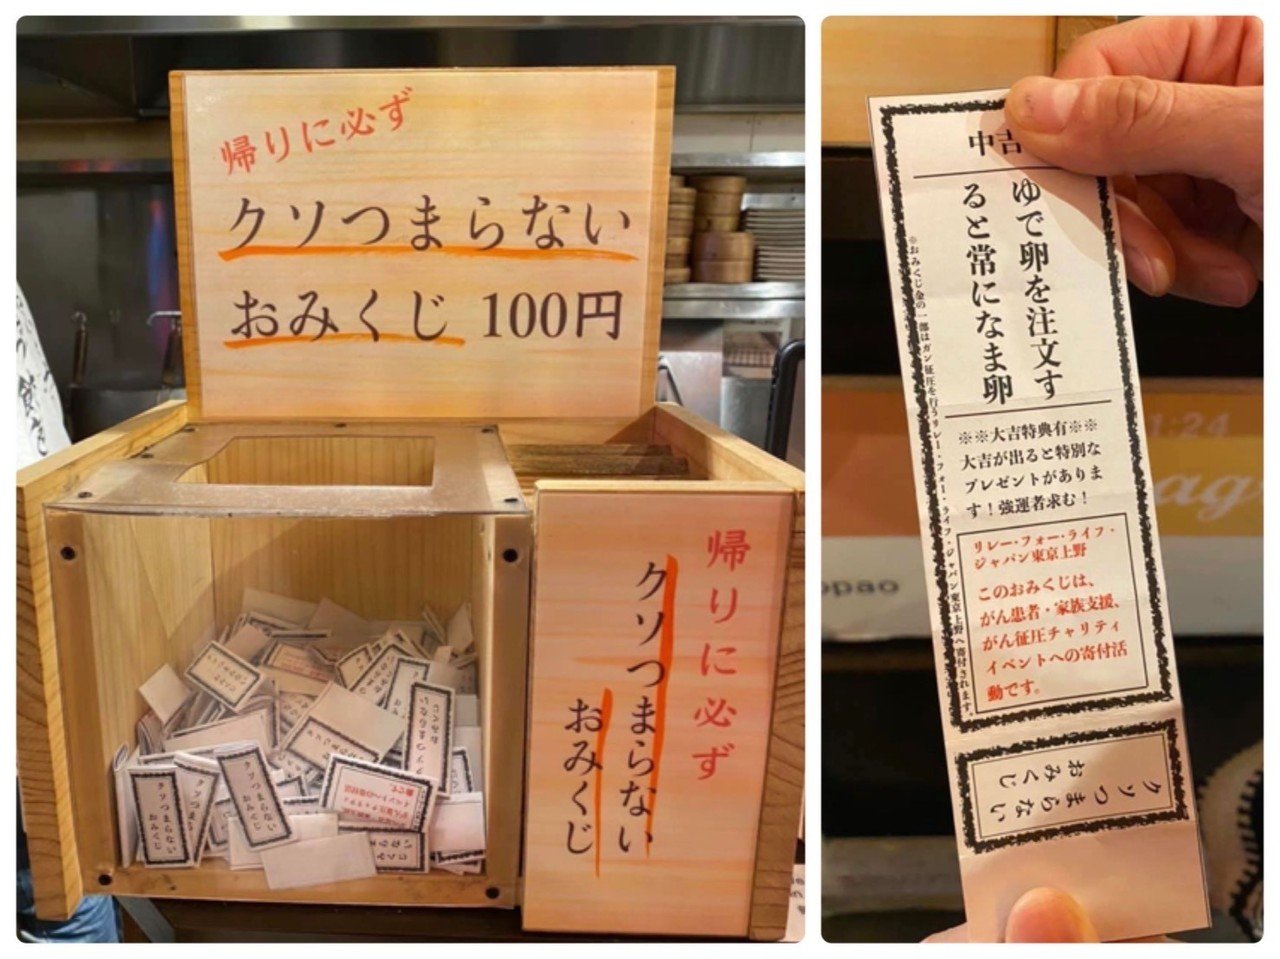 帰りに必ず
クソつまらない
おみくじ 100円
帰りに必ず
クソつまらない
おみくじ
クソつまらない
おみくじ
クソつまらない
おみくじ
中吉
ゆで卵を注文す
ると常になま卵
※おみくじ金の一部はガン征圧を行うリレー・フォー・ライフ・ジャパン東京上野へ寄付されます。
※※大吉特典有※※
大吉が出ると特別な
プレゼントがありま
す！強運者求む！
リレー・フォー・ライフ・
ジャパン東京上野
このおみくじは、
がん患者・家族支援、
がん征圧チャリティ
イベントへの寄付活
動です。
クソつまらない
おみくじ
1:24
ag
opao